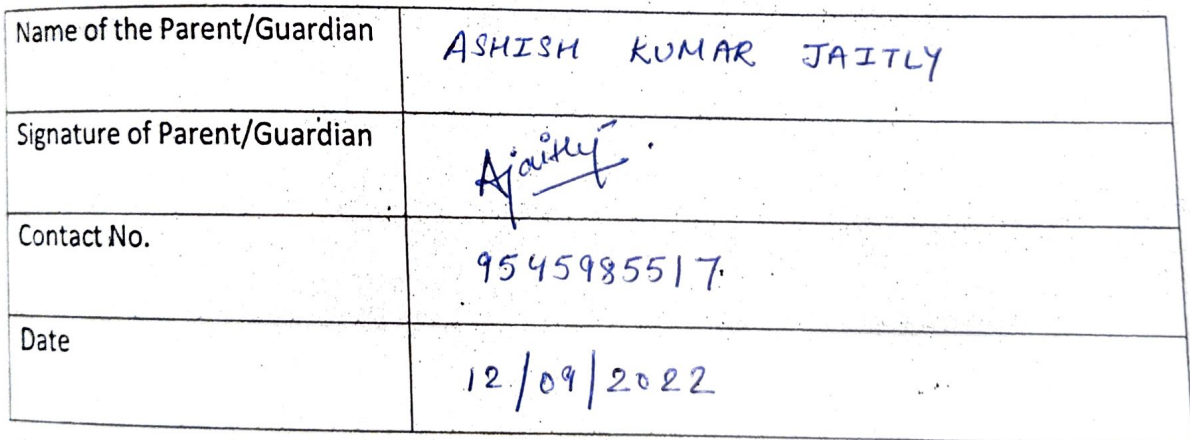 Name of the Parent/Guardian ASHISH KUMAR JAITLY
Signature of Parent/Guardian Ajaitly
Contact No. 9545985517.
Date 12/09/2022